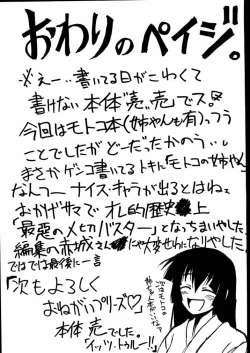 おわりのペイジ。
※えー…書いてる日がこわくて
書けない本体"売"売"でス。
今回はモトコ本(姉やんも有)っつう
ことでしたがどーだったかのぅ…
まさかゲンコ書いてるトキに「モトコの姉や」
なんつ〜ナイスキャラが出るとはねぇ
おかげサマでオレ的歴史上
「最悪のメ切りバスター」となっちまいやした
編集の赤城さんにゃ大変せわになりやした
ではでは最後に一言
「次もよろしく
おねがいプリーズ♡」
本体売でした。
(イッツ・トゥルー!!)